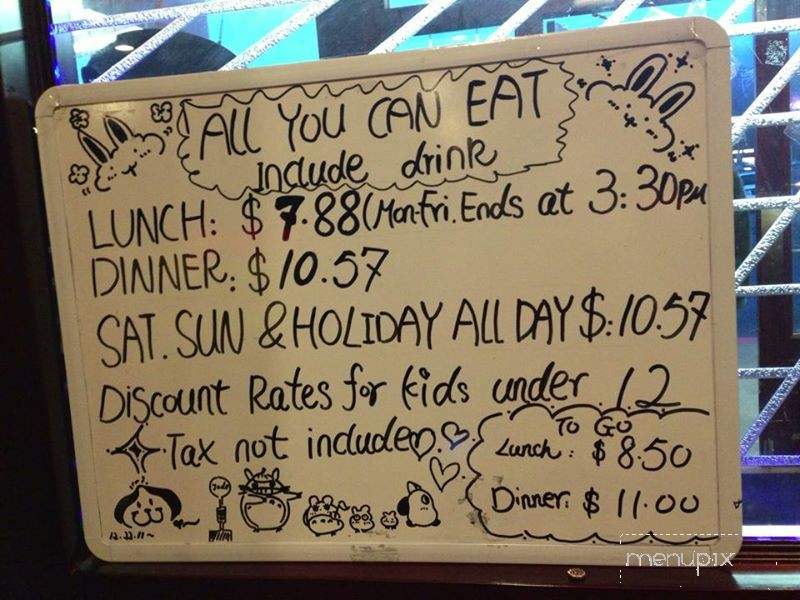 ALL YOU CAN EAT
Include drink
LUNCH: $7.88(Mon-Fri. Ends at 3:30PM
DINNER: $10.57
SAT. SUN & HOLIDAY ALL DAY $:10.57
Discount Rates for kids under 12
Tax not include
To Go
Lunch: $8.50
Dinner: $11.00
12.22.11~
menupix